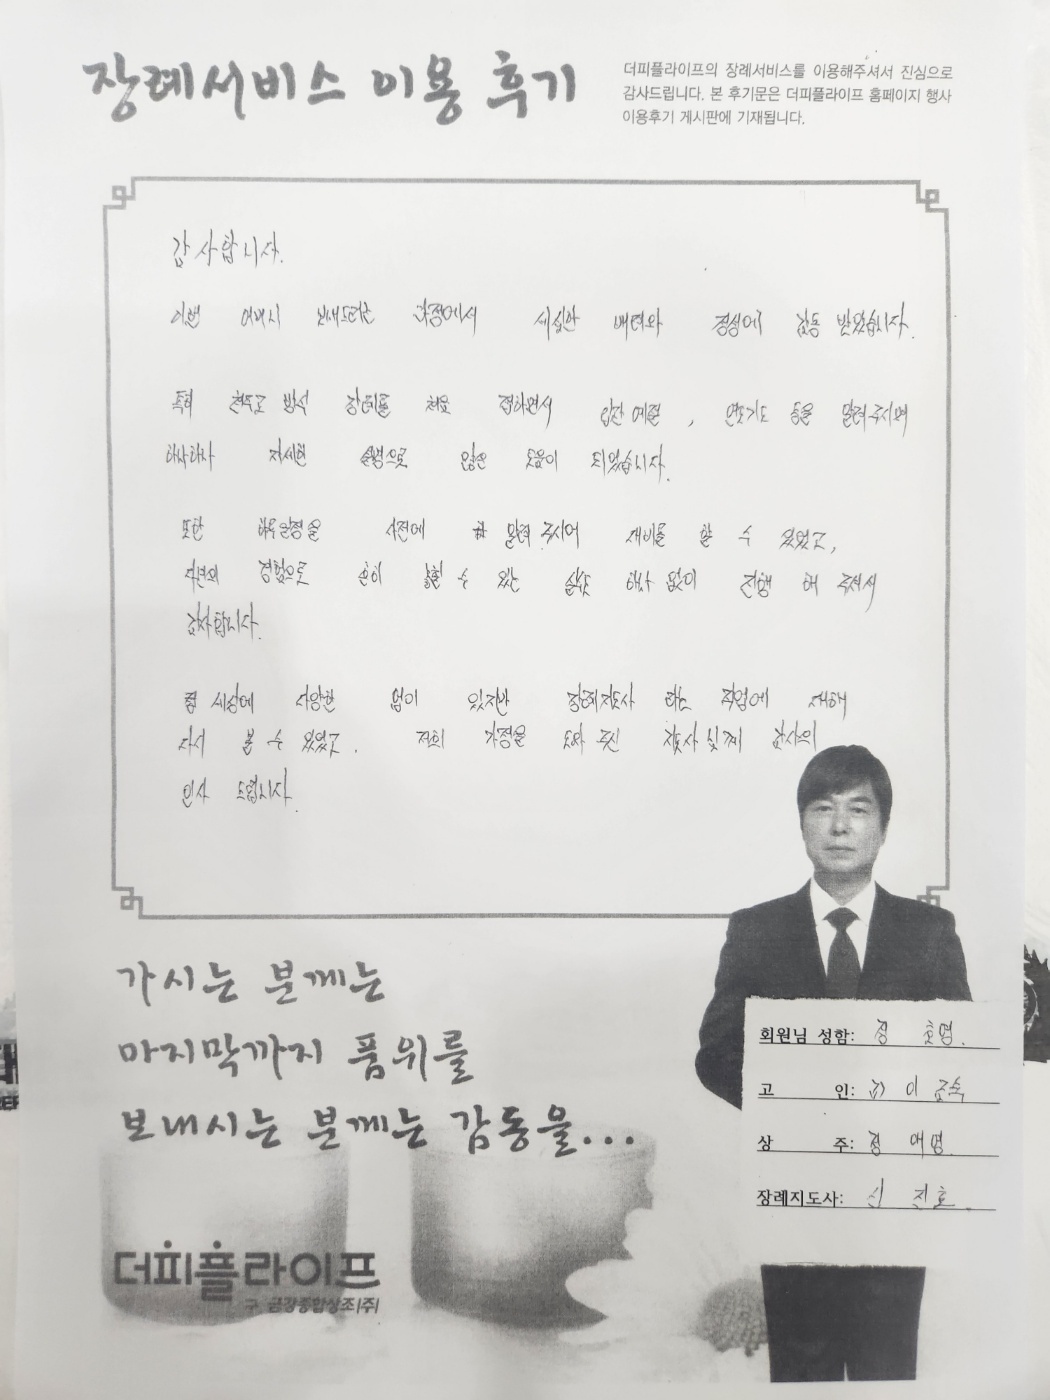 장례서비스 이용 후기
더피플라이프의 장례서비스를 이용해주셔서 진심으로
감사드립니다. 본 후기문은 더피플라이프 홈페이지 행사
이용후기 게시판에 기재됩니다.
감사합니다.
이번 어머니 보내드리는 과정에서 세심한 배려와 정성에 감동 받았습니다.
특히 천주교 방식 장례를 처음 접하면서 입관예절, 연도기도 등을 알려주시며
하나하나 자세한 설명으로 많은 도움이 되었습니다.
또한 하루 일정을 사전에 알려 주시어 대비를 할 수 있었고,
다년의 경험으로 흔히 할 수 있는 실수 하나 없이 진행 해 주셔서
감사합니다.
세상에 사양한 없이 있지만 장례지도사 라는 직업에 대해
다시 볼 수 있었고. 저희 가정을 도와 주신 지도사님께 감사의
인사 드립니다.
가시는 분께는
마지막까지 품위를
보내시는 분께는 감동을...
회원님 성함: 정 호영.
고 인: 故 이 춘숙
상 주: 정 대영
장례지도사: 신 진호.
더피플라이프
구 금강종합상조(주)